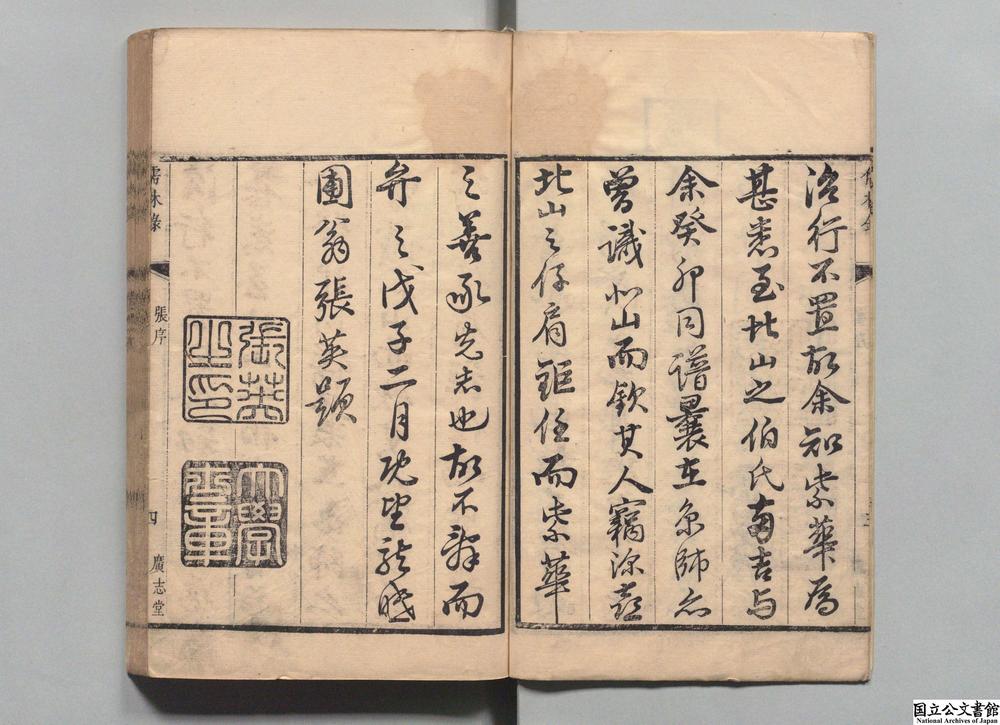 治行不置故余知紫華為
甚悉至北山之伯氏南吉与
余癸卯同譜曩在京師亦
曾識北山而欽其人竊深喜
北山之仔肩鉅任而紫華
之善承先志也故不辭而
弁之戊子二月既望龍眠
圃翁張英題
張英之印
張序
四
廣志堂
国立公文書館
National Archives of Japan